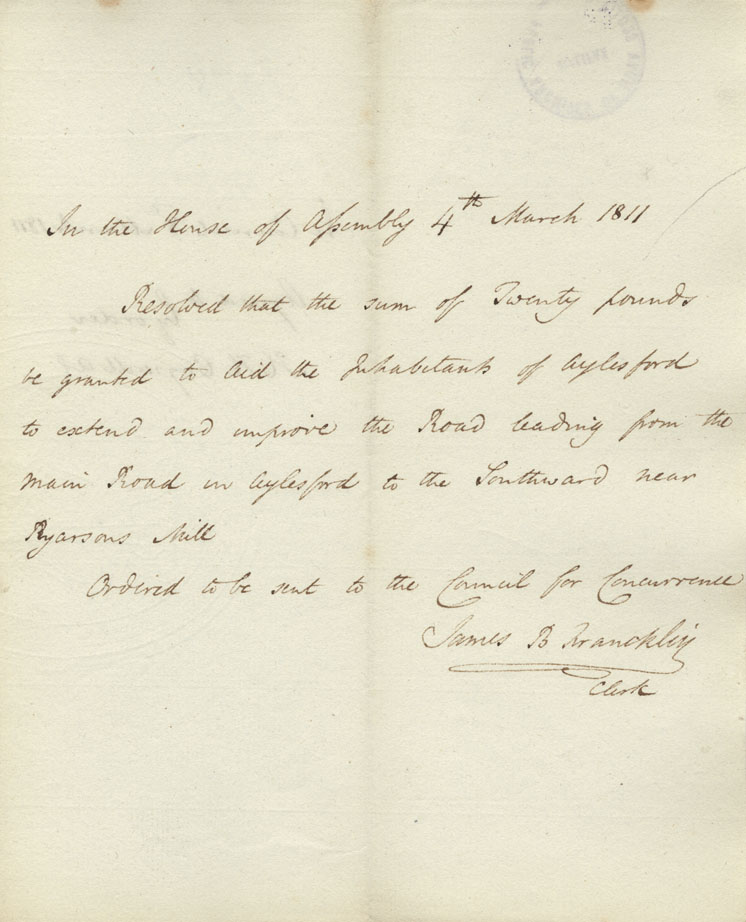 In the House of Assembly 4th March 1811
Resolved that the sum of Twenty pounds
be granted to aid the Inhabitants of Aylesford
to extend and improve the Road leading from the
main Road in Aylesford to the Southward near
Ryarsons Mill
Ordered to be sent to the Council for Concurrence
James B Francklin
Clerk